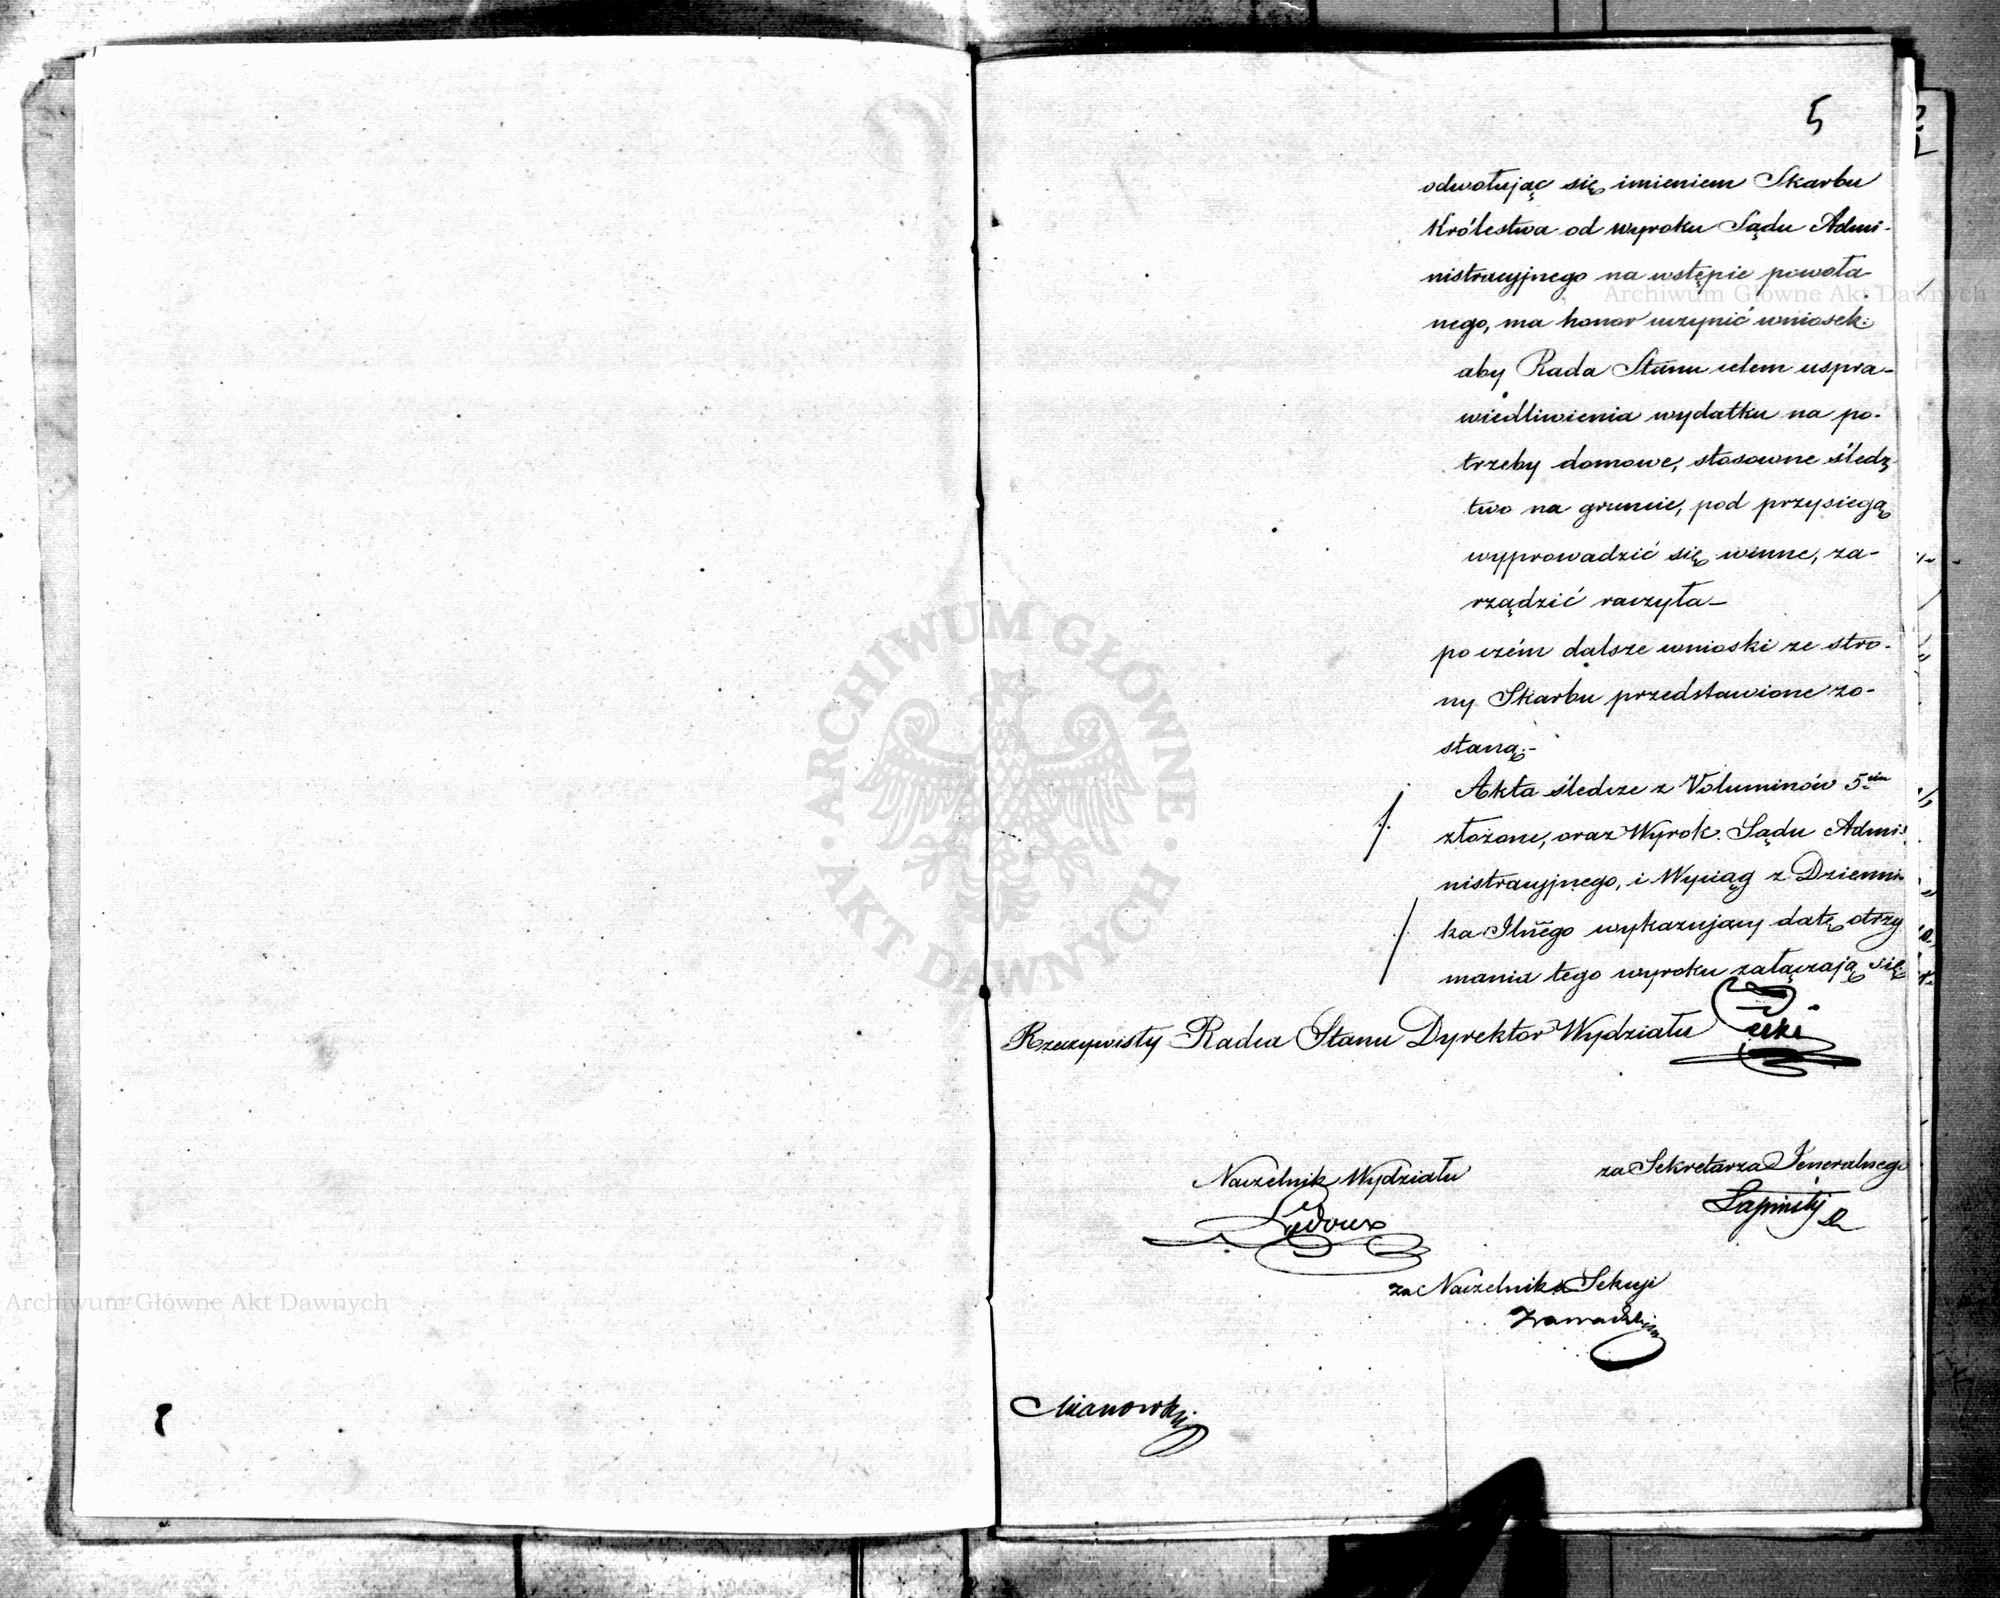 5
odwołując się imieniem Skarbu
Królestwa od wyroku Sądu Admi-
nistracyjnego na wstępie powoła-
nego, ma honor uczynić wniosek:
aby Rada Stanu celem uspra-
wiedliwienia wydatku na po-
trzeby domowe, stosowne śledz
two na gruncie, pod przysięgą
wyprowadzić się winne, za-
rządzić raczyła-
poczém dalsze wnioski ze stro-
ny Skarbu przedstawione zo-
staną.-
Akta śledcze z Voluminów 5ciu
złożone, oraz Wyrok Sądu Admi-
nistracyjnego, i Wyciąg z Dzienni-
ka Jlnego wykazujący datę otrzy
mania tego wyroku załączają się
Rzeczywisty Radca Stanu Dyrektor Wydziału
Naczelnik Wydziału
za Sekretarza Jeneralnego
Ledoux
Łapiński
za Naczelnika Sekcji
Zawadzki
Mianowski
ARCHIWUM GŁÓWNE AKT DAWNYCH
Archiwum Główne Akt Dawnych
Archiwum Główne Akt Dawnych